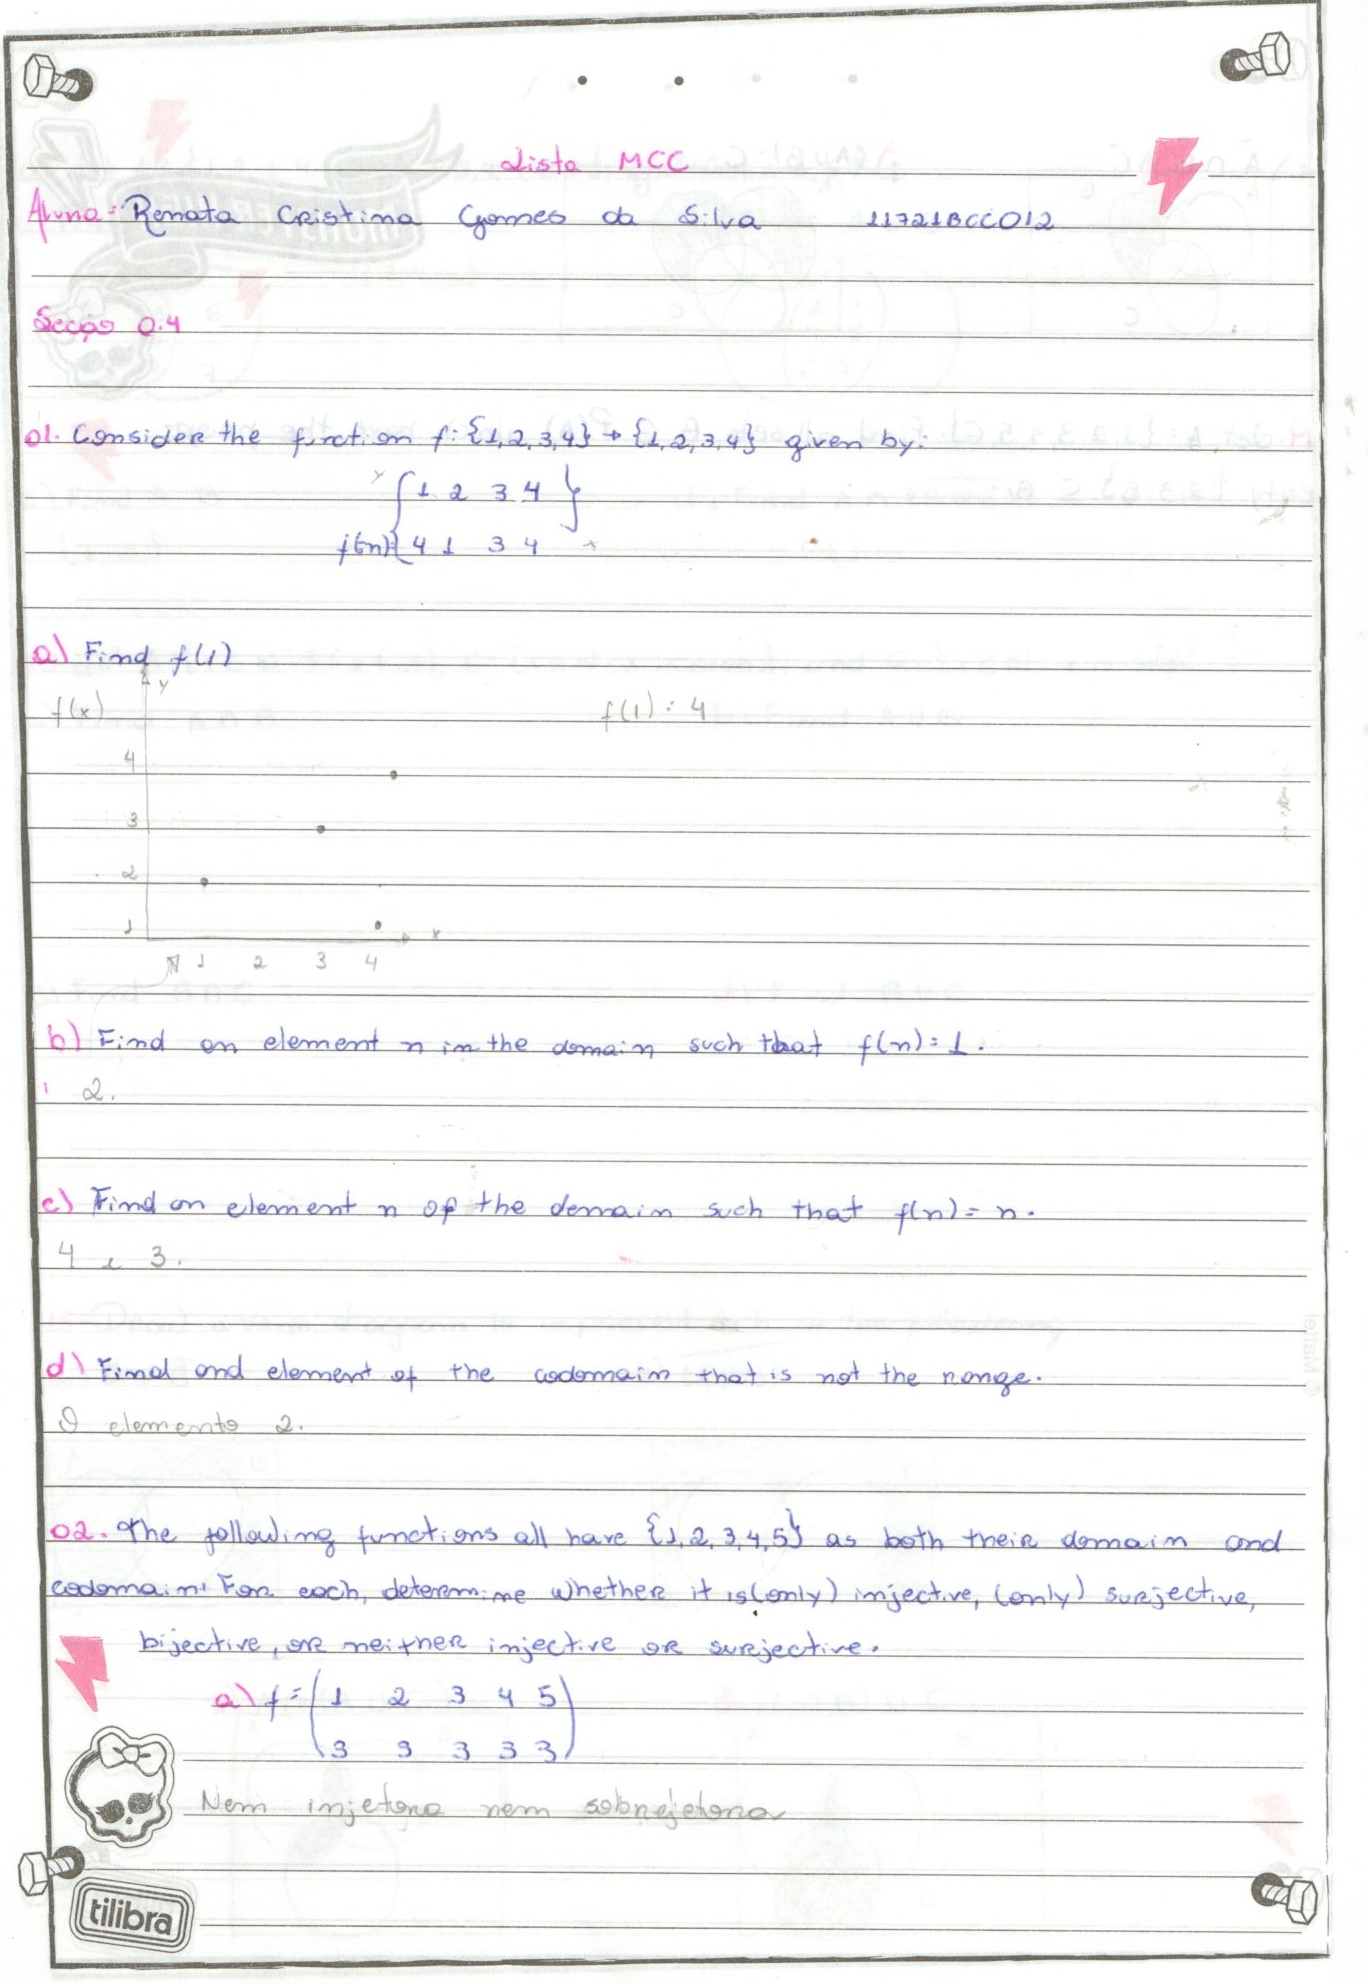 Lista MCC
Aluna: Renata Cristina Gomes da Silva 11721BCC012
Secção 0.4
01. Consider the function f: {1,2,3,4} → {1,2,3,4} given by:
y { 1 2 3 4 }
f(n)={ 4 1 3 4 x
a) Find f(1)
y
f(x) f(1) : 4
4
3
2
1 x
1 2 3 4
b) Find an element n in the domain such that f(n) = 1.
2.
c) Find an element n of the domain such that f(n) = n.
4 e 3.
d) Find and element of the codomain that is not the range.
O elemento 2.
02. The following functions all have {1,2,3,4,5} as both their domain and
codomain. For each, determine whether it is (only) injective, (only) surjective,
bijective, or neither injective or surjective.
a) f = ( 1 2 3 4 5 )
( 3 3 3 3 3 )
Nem injetora nem sobrejetora
tilibra